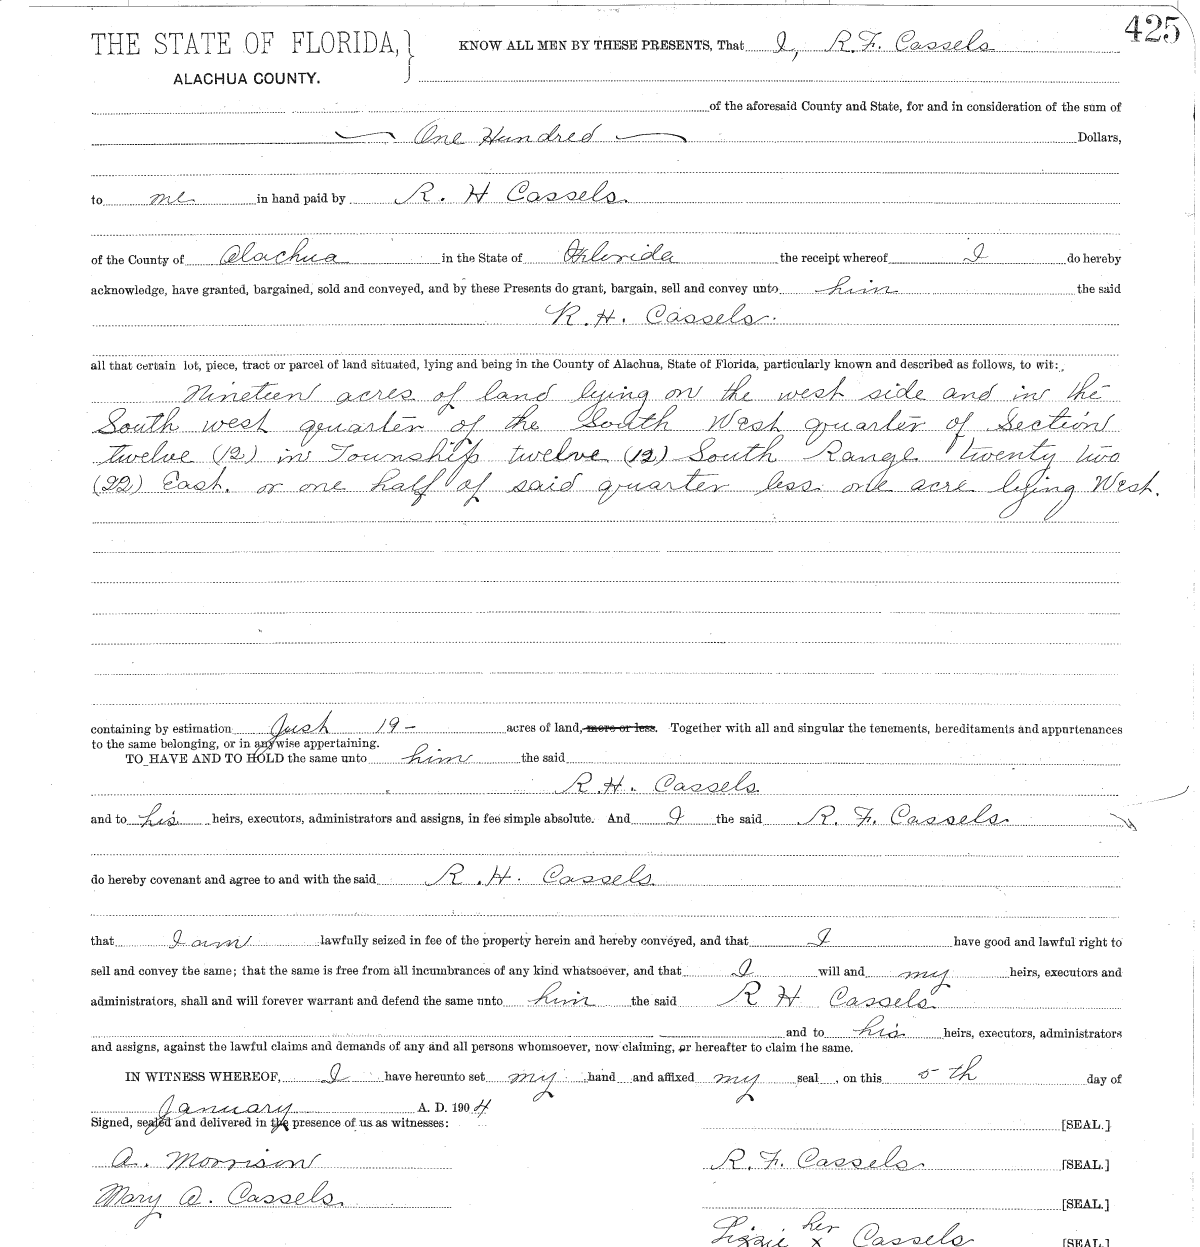 425
THE STATE OF FLORIDA, } KNOW ALL MEN BY THESE PRESENTS, That I, R. F. Cassels
ALACHUA COUNTY.
of the aforesaid County and State, for and in consideration of the sum of
One Hundred Dollars,
to me in hand paid by R. H Cassels.
of the County of Alachua in the State of Florida the receipt whereof I do hereby
acknowledge, have granted, bargained, sold and conveyed, and by these Presents do grant, bargain, sell and convey unto him the said
R. H. Cassels.
all that certain lot, piece, tract or parcel of land situated, lying and being in the County of Alachua, State of Florida, particularly known and described as follows, to wit:
Nineteen acres of land lying on the west side and in the
South west quarter of the South West quarter of Section
twelve (12) in Township twelve (12) South Range twenty two
(22) East. or one half of said quarter less one acre lying West.
containing by estimation Just 19 - acres of land, more or less. Together with all and singular the tenements, hereditaments and appurtenances
to the same belonging, or in anywise appertaining.
TO HAVE AND TO HOLD the same unto him the said
R. H. Cassels
and to his heirs, executors, administrators and assigns, in fee simple absolute. And I the said R. F. Cassels
do hereby covenant and agree to and with the said R. H. Cassels
that I am lawfully seized in fee of the property herein and hereby conveyed, and that I have good and lawful right to
sell and convey the same; that the same is free from all incumbrances of any kind whatsoever, and that I will and my heirs, executors and
administrators, shall and will forever warrant and defend the same unto him the said R H Cassels
and to his heirs, executors, administrators
and assigns, against the lawful claims and demands of any and all persons whomsoever, now claiming, or hereafter to claim the same.
IN WITNESS WHEREOF, I have hereunto set my hand and affixed my seal, on this 5th day of
January A. D. 1904
Signed, sealed and delivered in the presence of us as witnesses: [SEAL.]
A. Morrison R. F. Cassels [SEAL.]
Mary A. Cassels. [SEAL.]
Lizzie her x Cassels [SEAL.]